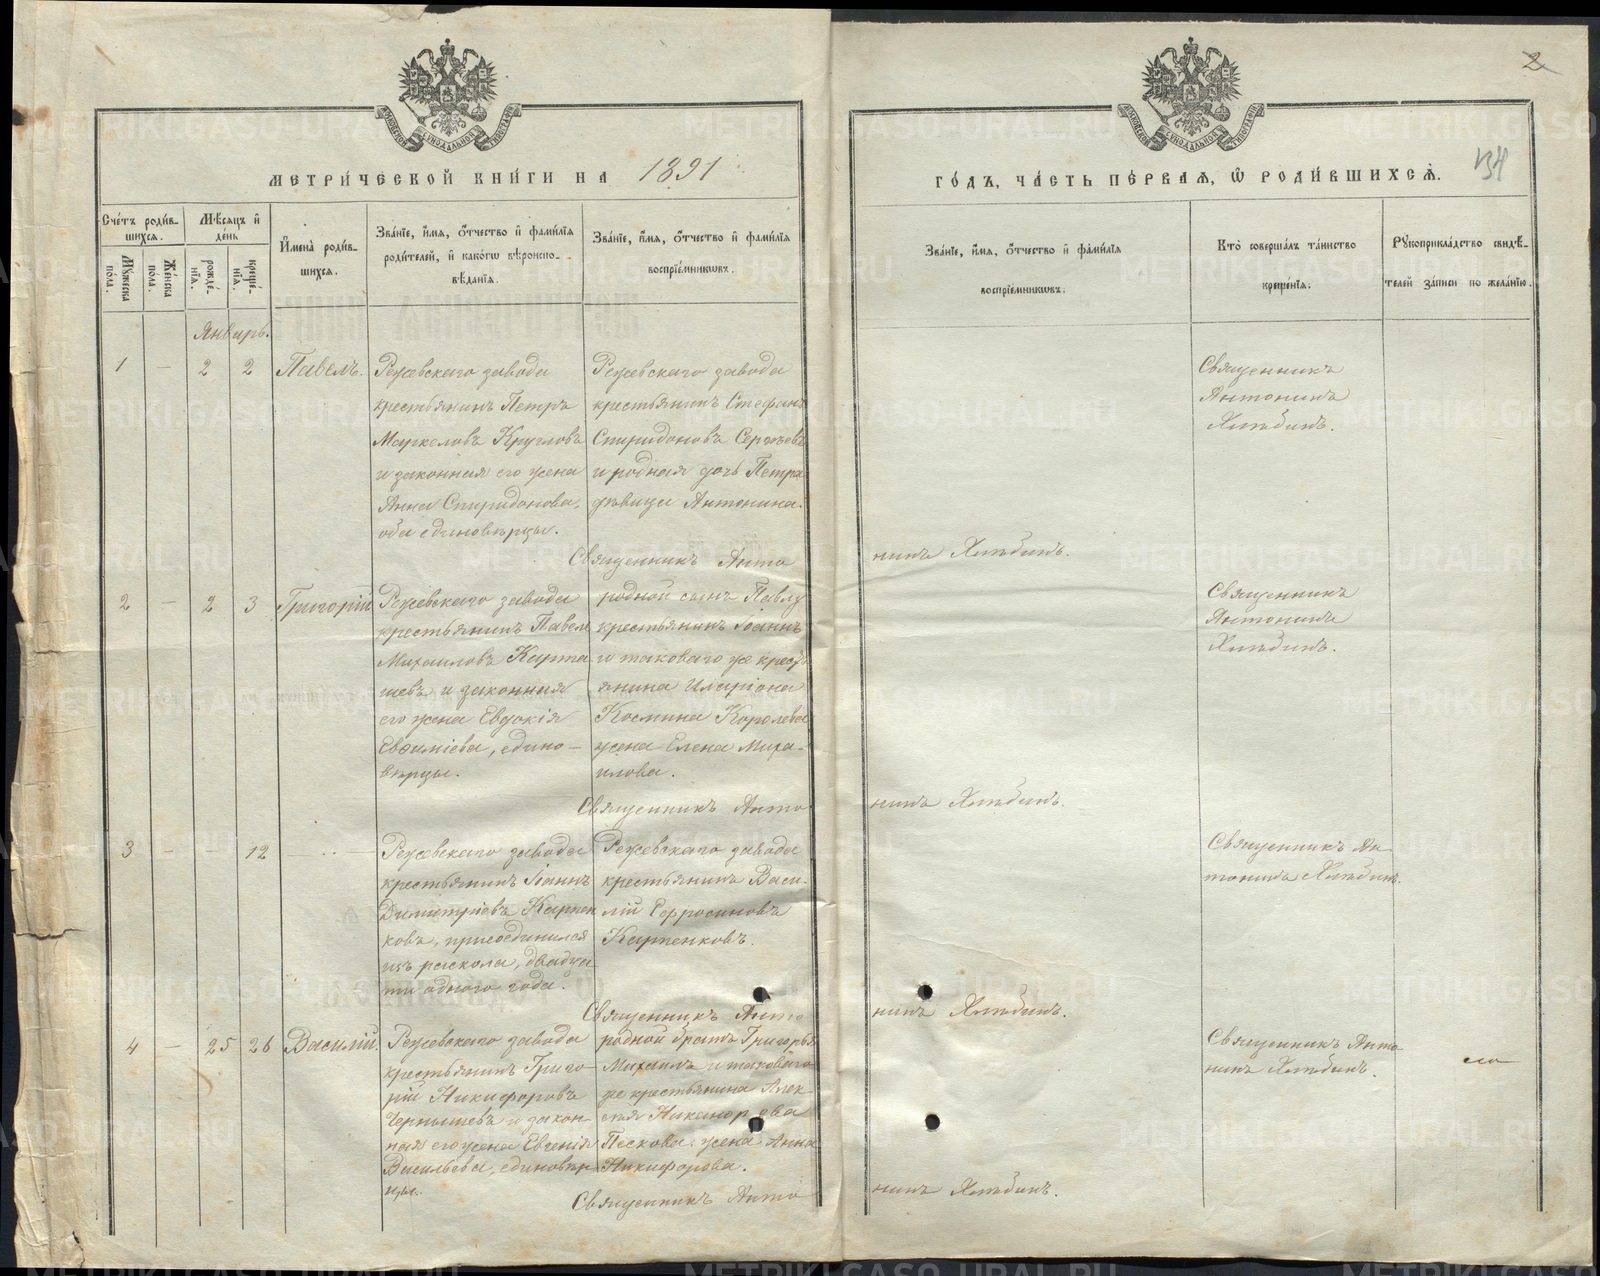 2
МЕТРИ́ЧЕСКОЙ КНИ́ГИ НА 1891
ГО́ДЪ, ЧА́СТЬ ПЕ́РВАѦ, Ѡ РОДИ́ВШИХСѦ.
Сче́тъ роди́в-
шихсѧ.
Мѣсѧцъ и
де́нь
Мꙋжеска по́ла.
Же́нска по́ла.
рожде́нїѧ.
креще́нїѧ.
Имена̀ роди́в-
шихсѧ.
Зва́нїе, и́мѧ, о́тчество и фами́лїѧ
роди́телей, и како́гѡ вѣроиспо-
вѣданїѧ.
Зва́нїе, и́мѧ, о́тчество и фами́лїѧ
воспрїе́мникѡвъ.
Зва́нїе, и́мѧ, о́тчество и фами́лїѧ
воспрїе́мникѡвъ.
Кто̀ соверша́лъ та́инство
креще́нїѧ.
Рꙋкоприкла́дство свидѣ́-
телей за́писи по жела́нїю.
Январь.
1 — 2 2 Павелъ.
Режевскаго завода
крестьянинъ Петръ
Маркеловъ Кругловъ
и законная его жена
Анна Спиридонова,
оба единовѣрцы.
Режевскаго завода
крестьянинъ Стефанъ
Спиридоновъ Сергѣевъ
и родная дочь Петра
дѣвица Антонина.
Священникъ
Антонинъ
Хлѣбинъ.
Священникъ Анто
нинъ Хлѣбинъ.
2 — 2 3 Григорій
Режевскаго завода
крестьянинъ Павелъ
Михаиловъ Карта
шевъ и законная
его жена Евдокія
Евѳиміева, едино-
вѣрцы.
родной сынъ Павла
крестьянинъ Іоаннъ
и таковаго же кресть
янина Иларіона
Космина Королева
жена Елена Миха-
илова.
Священникъ
Антонинъ
Хлѣбинъ.
Священникъ Анто
нинъ Хлѣбинъ.
3 — — 12 —
Режевскаго завода
крестьянинъ Іоаннъ
Димитріевъ Карпен
ковъ, присоединился
изъ раскола, двадца
ти одного года.
Режевскаго завода
крестьянинъ Васи-
лій Ефросиновъ
Карпенковъ.
Священникъ Ан
тонинъ Хлѣбинъ.
Священникъ Анто
нинъ Хлѣбинъ.
4 — 25 26 Василій.
Режевскаго завода
крестьянинъ Григо-
рій Никифоровъ
Чернышевъ и закон-
ная его жена Евгенія
Васильева, единовѣр
цы.
родной братъ Григорья
Михаилъ и таковаго
же крестьянина Алек
сѣя Никанорова
Пескова жена Анна
Никифорова.
Священникъ Анто
нинъ Хлѣбинъ.
Священникъ Анто
нинъ Хлѣбинъ.
METRIKI.GASO-URAL.RU